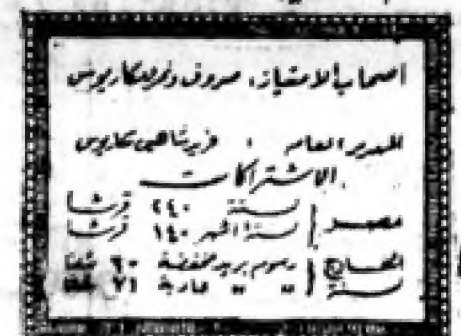 اصحاب الامتياز: صروف ونمر ومكاريوس
المدير العام: فريد شاهين مكاريوس
الاشتراكات
مصر لسنة ٢٤٠ قرشا
لستة اشهر ١٤٠ قرشا
الخارج رسوم بريد مخفضة ٦٠ شلنا
لسنة " " عادية ٧١ شلنا